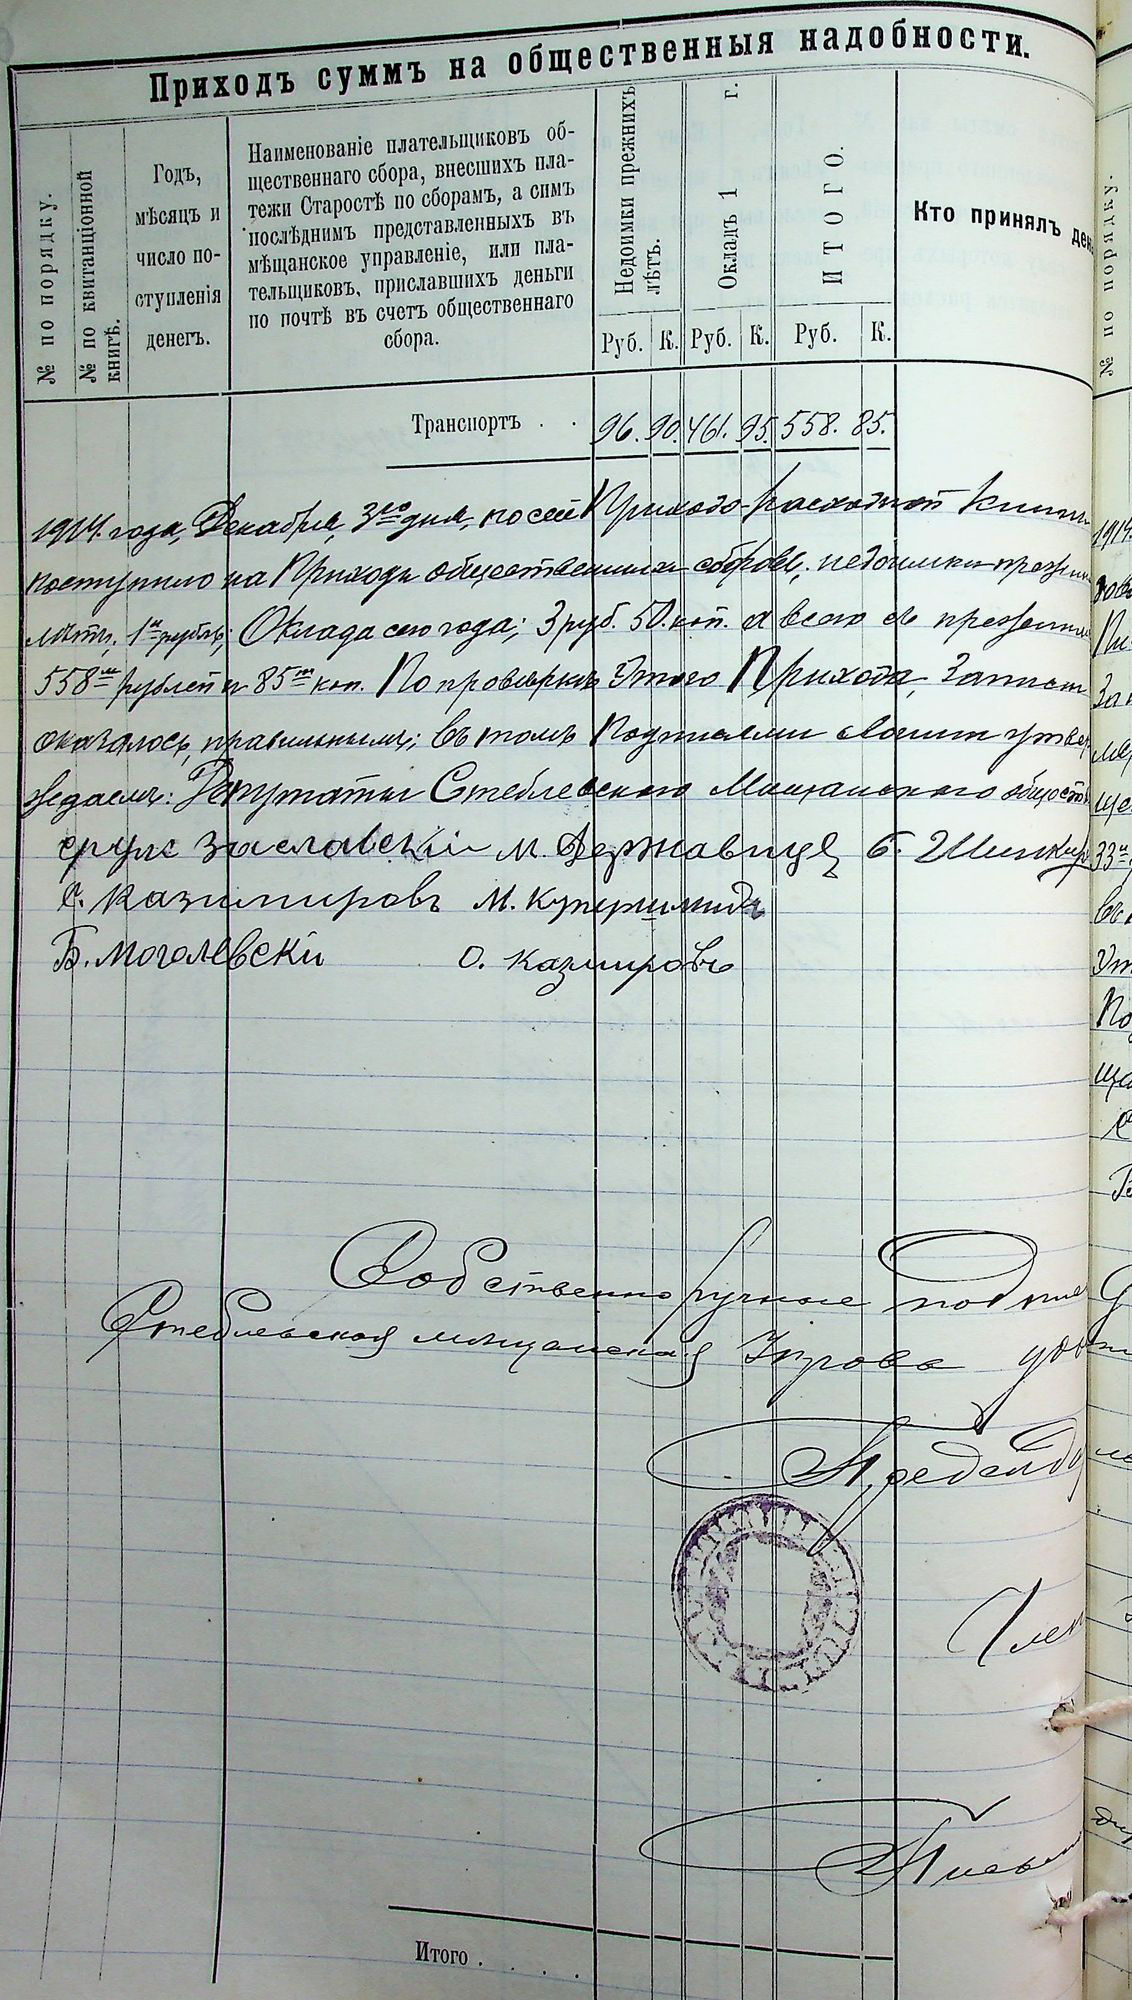 Приходъ суммъ на общественныя надобности.
№ по порядку.
№ по квитанціонной книгѣ.
Годъ,
мѣсяцъ и
число по-
ступленія
денегъ.
Наименованіе плательщиковъ об-
щественнаго сбора, внесшихъ пла-
тежи Старостѣ по сборамъ, а симъ
послѣднимъ представленныхъ въ
мѣщанское управленіе, или пла-
тельщиковъ, приславшихъ деньги
по почтѣ въ счетъ общественнаго
сбора.
Недоимки прежнихъ
лѣтъ.
Окладъ 1 г.
ИТОГО.
Руб. К. Руб. К. Руб. К.
Кто принялъ ден
№ по порядку.
Транспортъ . . 96. 90. 461. 95. 558. 85.
1914 года, Декабря, 3го дня, по сей Приходо-расходной Книги
поступило на Приходъ общественныхъ сборовъ, недоимки прежни
лѣтъ, 1нъ рубль; Оклада сего года; 3 руб. 50. коп. А всего съ прежними
558м рублей и 85т коп. По провѣркѣ Этого Прихода, Записи
оказалось правильнымъ; въ томъ Подписями своими утвер
ждаемъ: Депутаты Стеблевского Мещанского общества
срулъ Заславскій М. Державецъ Б. Шинкар
С. Казимировъ М. Купершмидъ
Б. Моголевскій О. Казмировъ
Собственноручные подписи
Стеблевская мещанская Управа удо
Предсѣда
Член
Письм
Итого . . . .